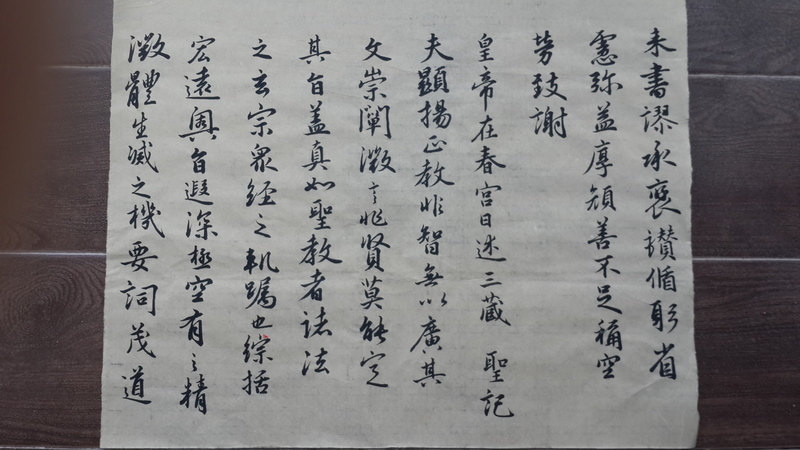 来書謬承褒讃循躬省
慮弥益厚顔善不足稱空
勞致謝
皇帝在春宮日述三藏 聖記
夫顯揚正教非智無以廣其
文崇闡微言非賢莫能定
其旨盖真如聖教者諸法
之玄宗衆經之軌躅也綜括
宏遠奧旨遐深極空有之精
微體生滅之機要詞茂道